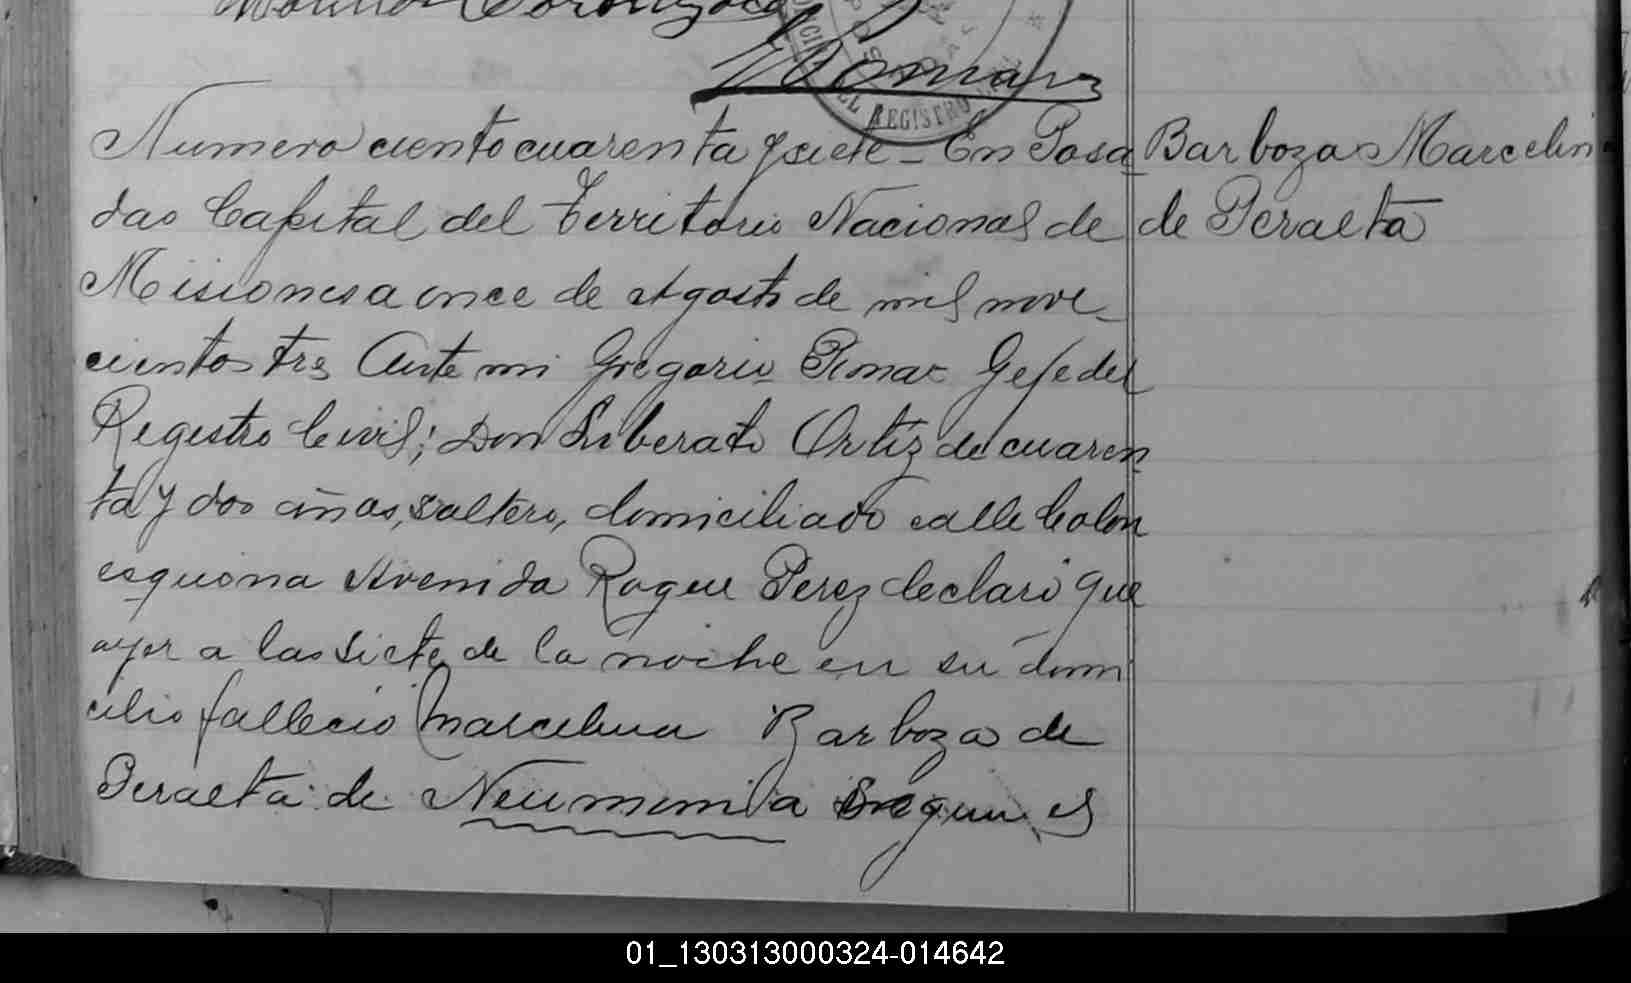 Numero ciento cuarenta y siete - En Posa Barboza Marcelin
das Capital del Territorio Nacional de de Peralta
Misiones a once de Agosto de mil nove
cientos tres Ante mi Gregorio Pomar Gefe del
Registro Civil; Don Liberato Ortiz de cuaren
ta y dos años, soltero, domiciliado calle Colon
esquina Avenida Roque Perez declaró que
ayer a las siete de la noche en su domi
cilio fallecio Marcelina Barboza de
Peralta de Neumonia segun el
01_130313000324-014642